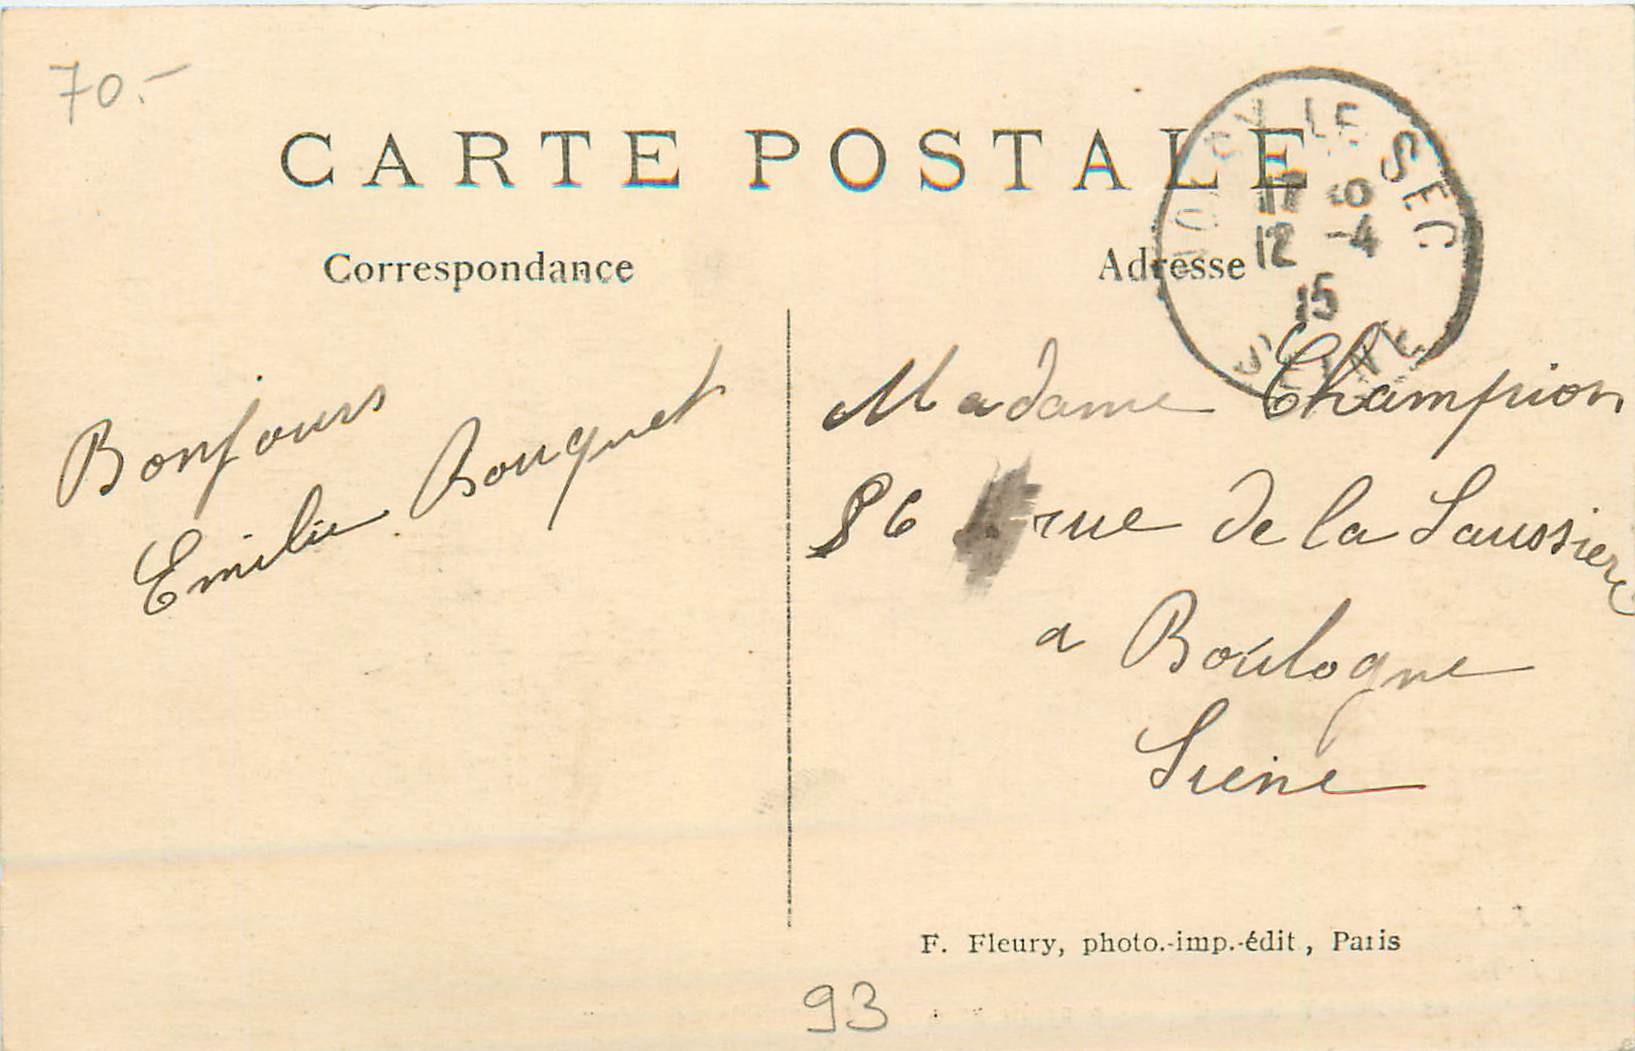 70.-
CARTE POSTALE
Correspondance
Adresse
NOISY LE SEC
17 30
12 -4
15
SEINE
Bonjours
Emilie Bouquet
Madame Champion
86 rue de la Saussiere
a Boulogne
Seine
F. Fleury, photo.-imp.-édit, Paris
93